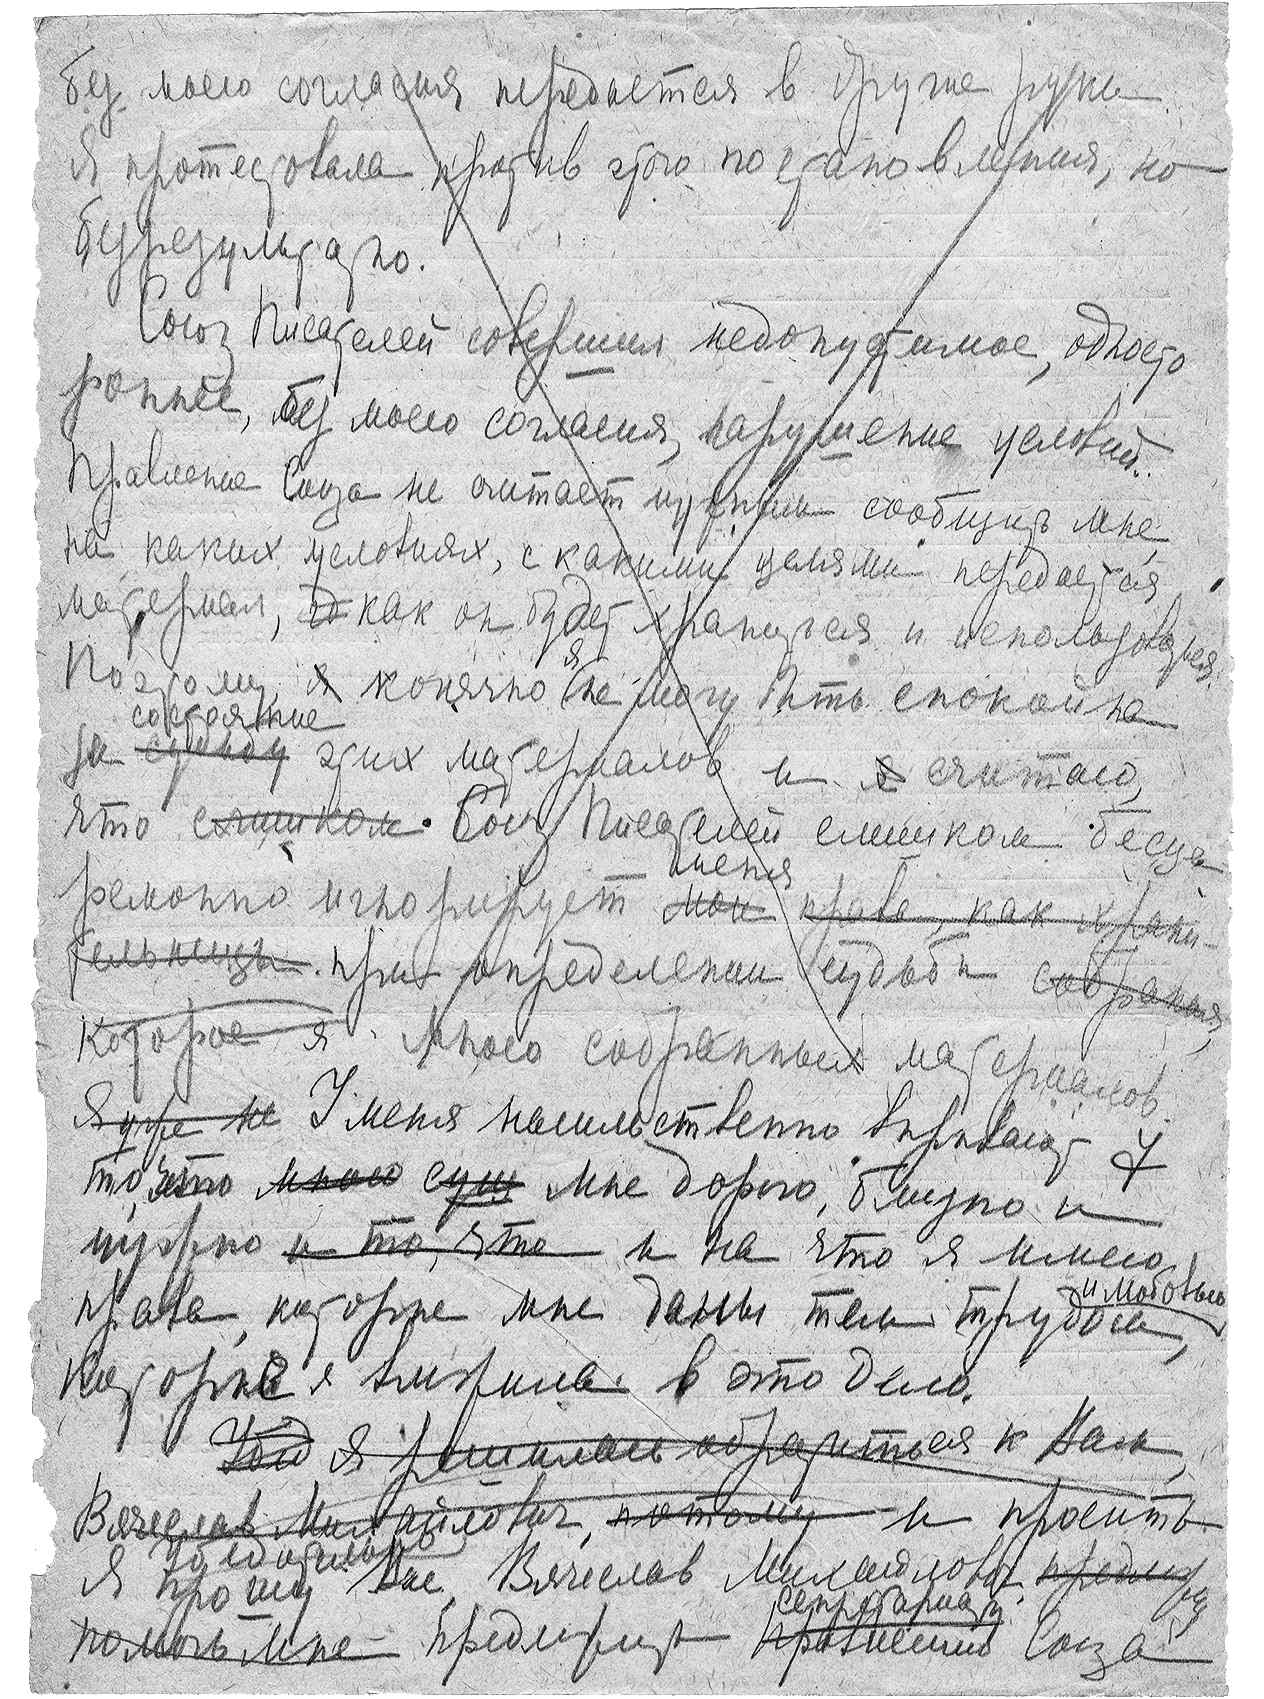 без моего согласия передается в другие руки
Я протестовала против этого постановления, но
безрезультатно.
Союз Писателей совершил недопустимое, односто
роннее, без моего согласия, нарушение условий.
Правление Союза не считает нужным сообщить мне,
на каких условиях, с какими целями передается
материал, как он будет храниться и использоваться.
Поэтому, я конечно я не могу быть спокойна
состояние
за судьбу этих материалов и я считаю,
что слишком Союз Писателей слишком бесце
ремонно игнорирует мои права, как храни-
меня
тельницы при определении судьбы собрания,
которое я много собранных материалов.
Я уже не У меня насильственно вырывают
то, что много сущ мне дорого, близко и
нужно и то, что и на что я имею
права, которые мне даны тем трудом,
и любовью
которые я вложила в это дело.
Я решилась обратиться к Вам,
Вячеслав Михайлович, потому и просить
убедительно
Я прошу Вас, Вячеслав Михайлович
секретариату
помочь мне предложить правлению Союза